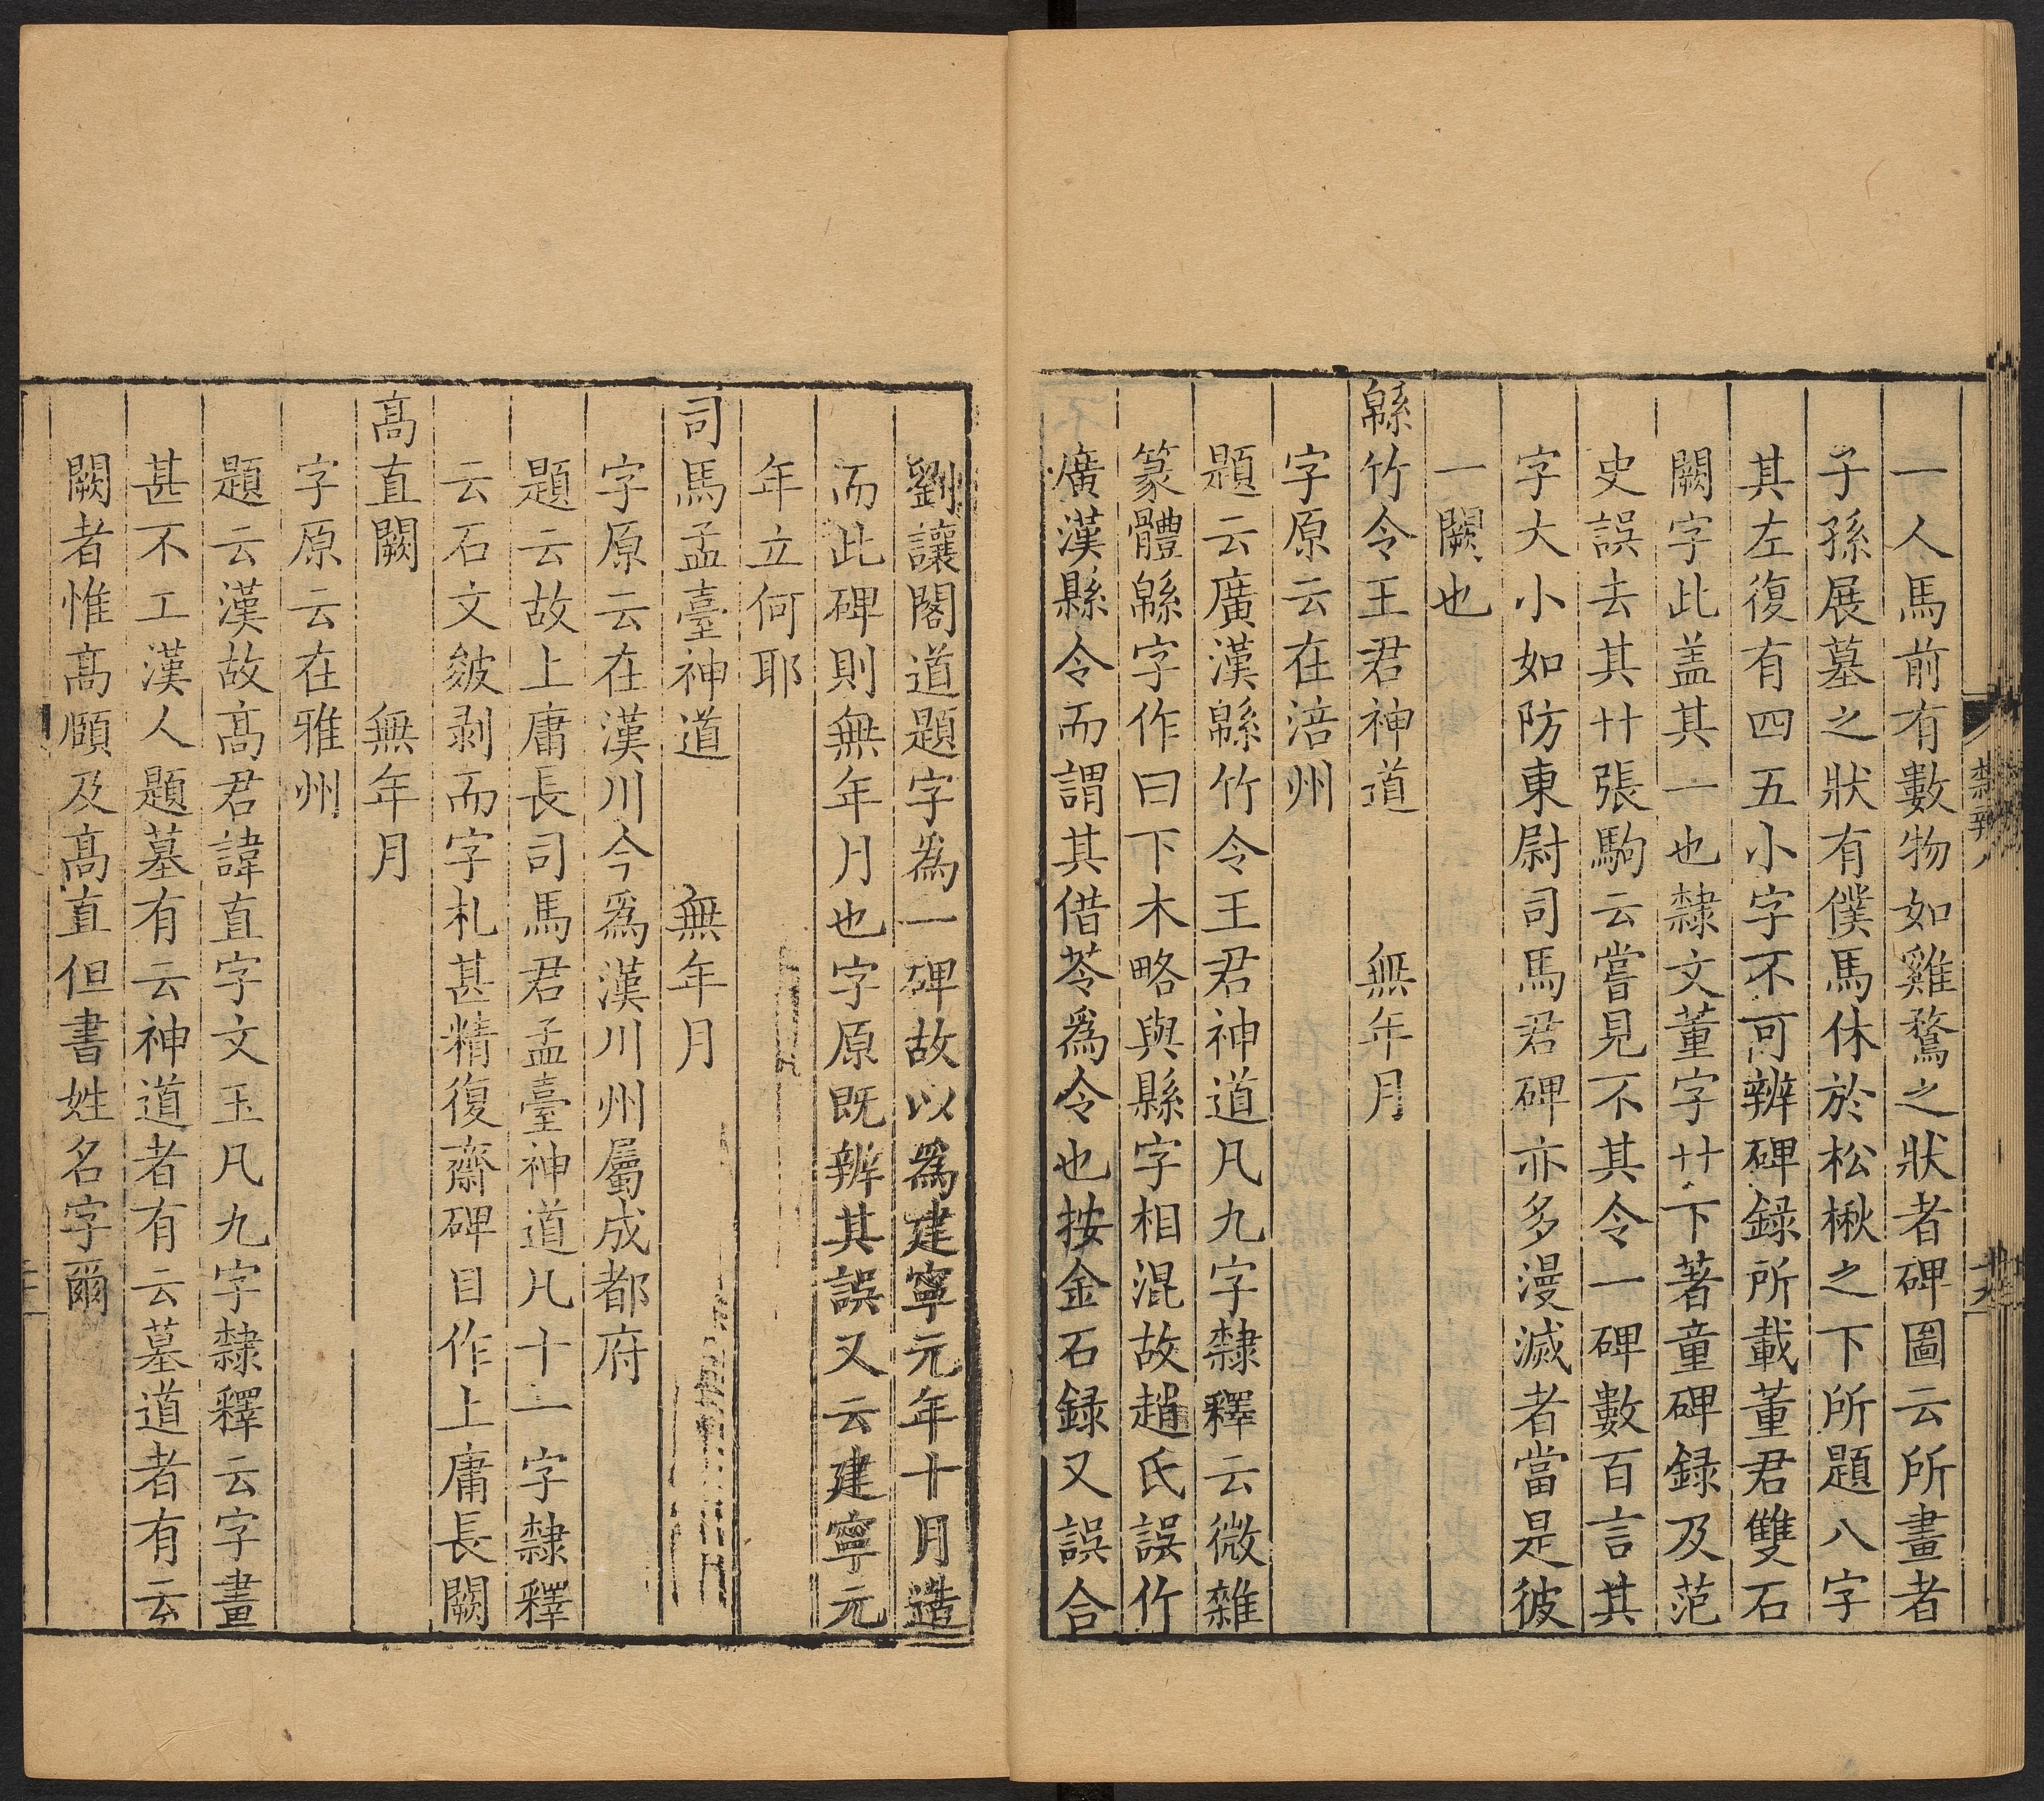 一人馬前有數物如雞鶩之狀者碑圖云所畫者
子孫展墓之狀有僕馬休於松楸之下所題八字
其左復有四五小字不可辨碑録所載董君雙石
闕字此盖其一也隸文董字廿下著童碑録及范
史誤去其廿張駒云嘗見不其令一碑數百言其
字大小如防東尉司馬君碑亦多漫滅者當是彼
一闕也
緜竹令王君神道 無年月
字原云在涪州
題云廣漢緜竹令王君神道凡九字隸釋云微雜
篆體緜字作曰下木略與縣字相混故趙氏誤竹
廣漢縣令而謂其借苓爲令也按金石録又誤合
劉讓閣道題字爲一碑故以爲建寧元年十月造
而此碑則無年月也字原既辨其誤又云建寧元
年立何耶
司馬孟臺神道 無年月
字原云在漢川今爲漢川州屬成都府
題云故上庸長司馬君孟臺神道凡十一字隸釋
云石文皴剥而字札甚精復齋碑目作上庸長闕
高直闕 無年月
字原云在雅州
題云漢故高君諱直字文玉凡九字隸釋云字畫
甚不工漢人題墓有云神道者有云墓道者有云
闕者惟高頤及高直但書姓名字爾
隸辨八
十九